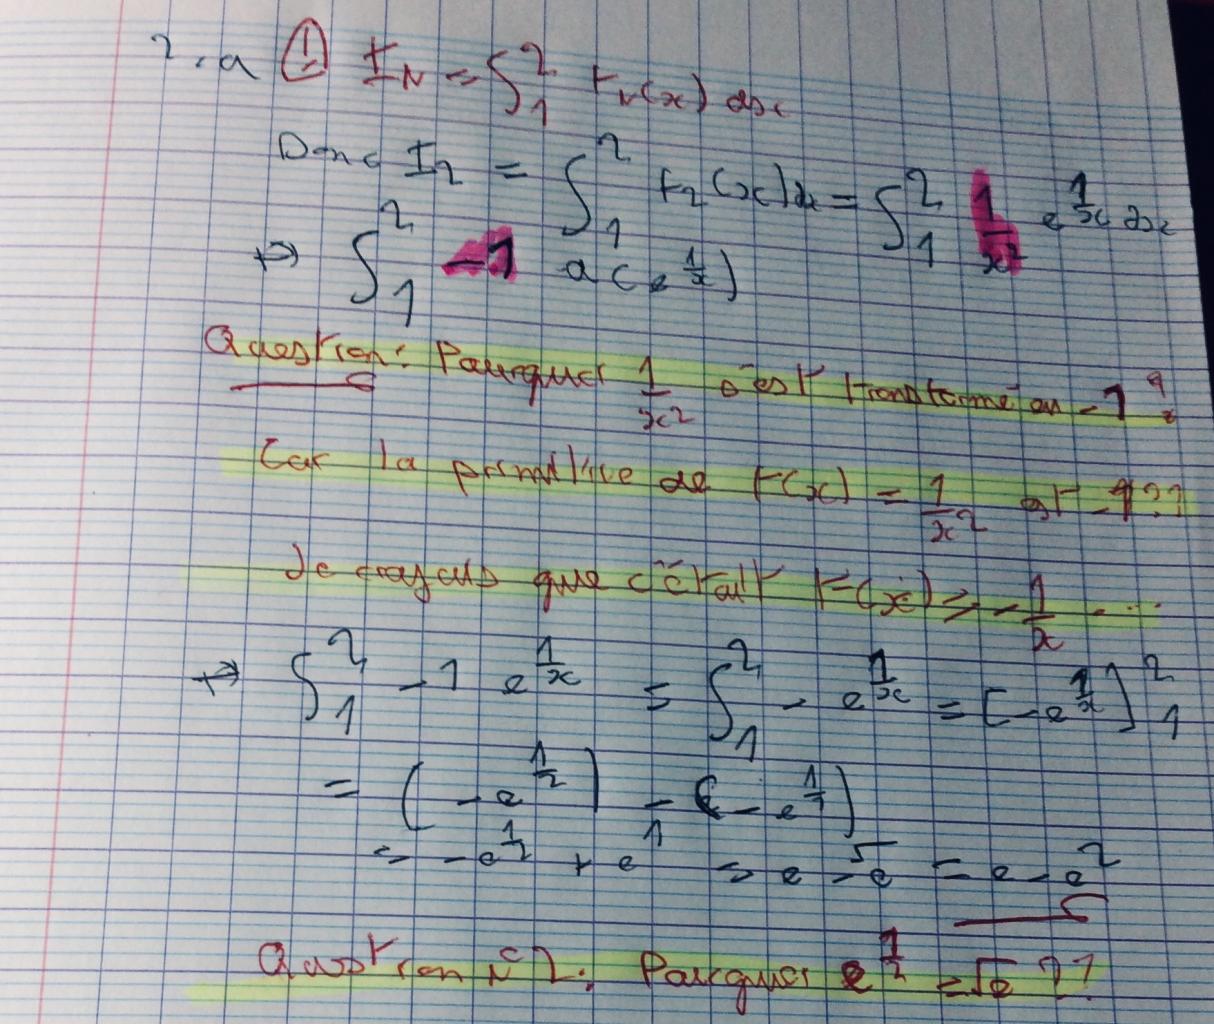 2.a ① I_N = ∫₁² F_N(x) dx
Donc I₂ = ∫₁² F₂(x)dx = ∫₁² 1/x² e^(1/x) dx
↦ ∫₁² -1 d(e^(1/x))
Question: Pourquoi 1/x² s'est transformé en -1 ?
Car la primitive de F(x) = 1/x² est -1??
Je croyais que c'était F(x) = -1/x ...
↦ ∫₁² -1 e^(1/x) = ∫₁² - e^(1/x) = [-e^(1/x)]₁²
= (-e^(1/2)) - (-e^(1/1))
= -e^(1/2) + e^1 = e - √e = e - e^2
Question N°2: Pourquoi e^(1/2) = √e ??